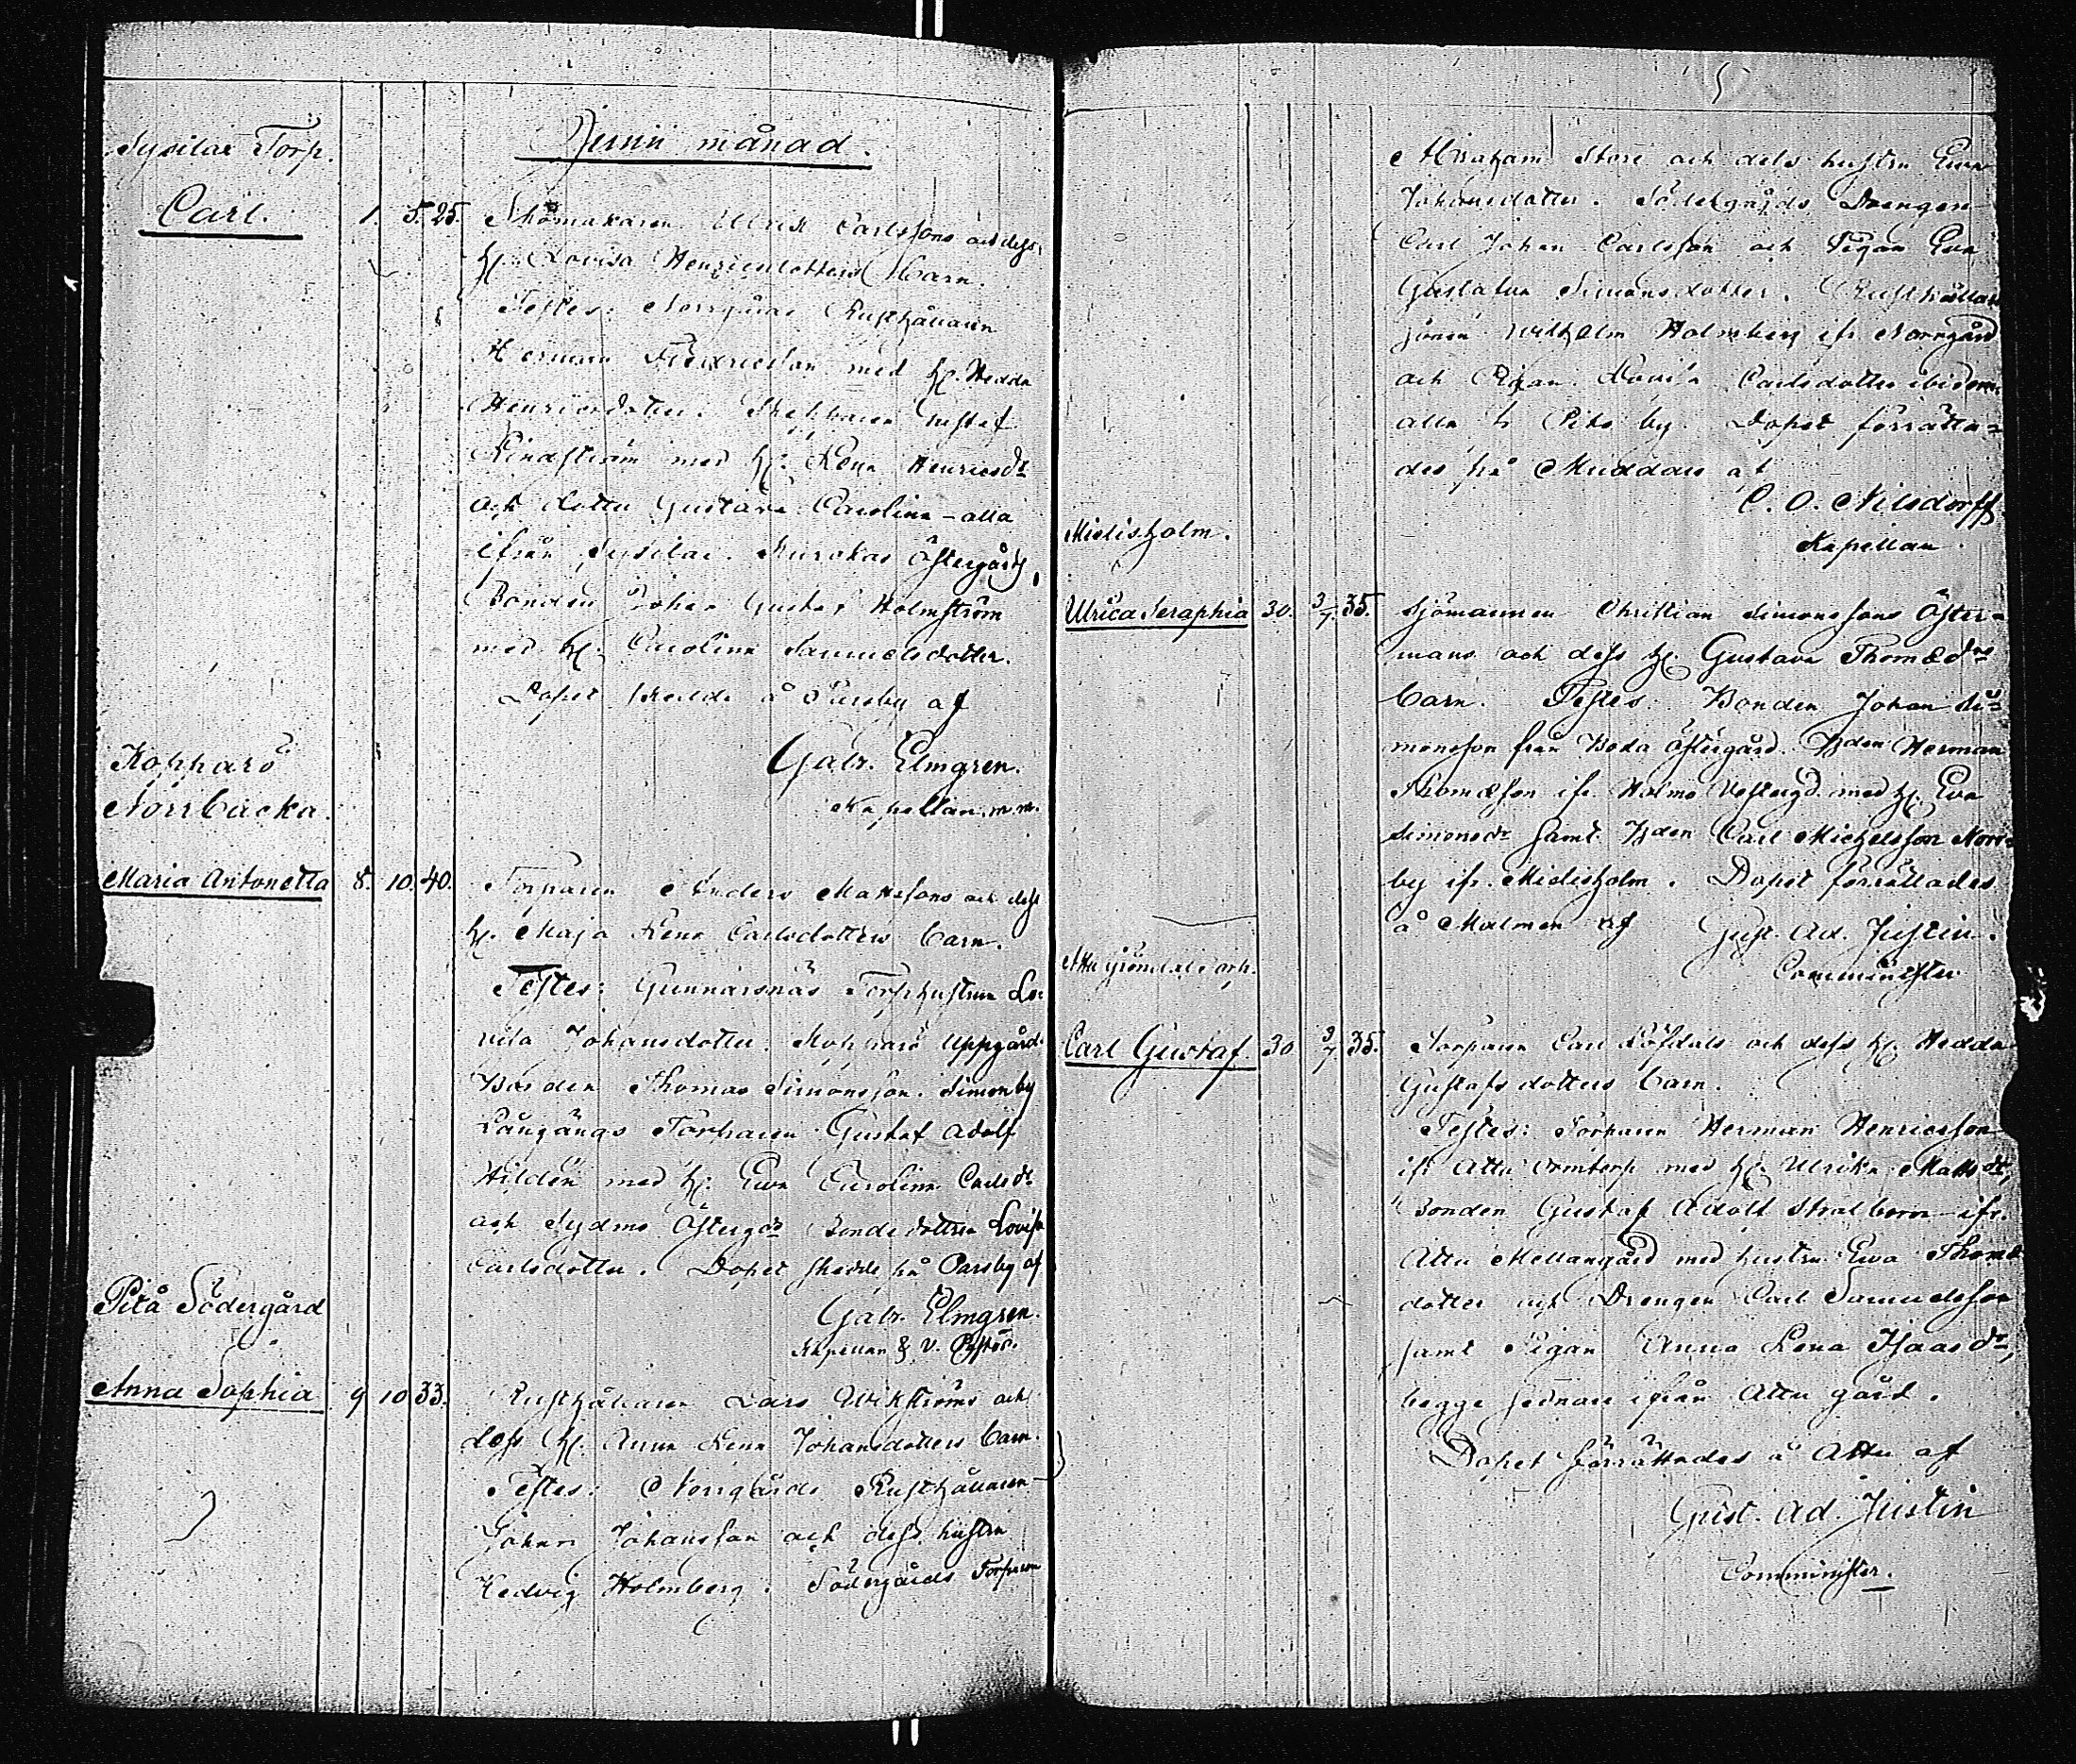 Junii månad.
Sysilax Torp.
Carl. 1. 5. 25. Skomakaren Ulrik Carlssons och dess
h. Lovisa Henricsdotters Barn.
Testes: Norrgårds Rusthållaren
Herman Fredricsson med h. Hedda
Henricsdotter. Gustaf
Lindström med h. Lena Henricsdr
och dotter Gustava Carolina - alla
ifrån Sysilax. Östergårds
Bonden Johan Gustaf Holmström
med h. Carolina Samuelsdotter.
Dopet skedde å Pursby af
Gabr. Elmgren.
Kapellan m.m.
Kopparö
Norrbacka.
Maria Antonetta 8. 10. 40. Torparen Anders Mattssons och dess
h. Maja Lena Carlsdotters barn.
Testes: Gunnarsnäs Torphustrun Lo-
visa Johansdotter. Kopparö Uppgårds
Bonden Thomas Simonsson. Simonby
Långängs Torparen Gustaf Adolf
Hildén med h. Ewa Carolina Carlsdr
och Sydmo Östergds Bondedottren Lovisa
Carlsdotter. Dopet skedde på Parsby af
Gabr. Elmgren.
Kapellan & V. Pastor.
Pitå Södergård
Anna Sophia 9 10 33. Rusthållaren Lars Wikströms och
dess h. Anna Lena Johansdotters barn.
Testes: Norrgårds Rusthållaren
Johan Johansson och dess hustru
Hedvig Holmberg. Södergårds Torparen
5
Abraham Store och dess hustru Ewa
Johansdotter. Södergårds Drengen
Carl Johan Carlsson och Pigan Eva
Gustafva Simonsdotter. Rusthållare
sonen Wilhelm Holmberg ifr. Norrgård
och Pigan Lovisa Carlsdotter ibidem
alla fr by. Dopet förrätta-
des på Muddais af
C. O. Nilsdorff
Kapellan.
Mielisholm.
Ulrica Seraphia 30. 3/7. 35. Sjömannen Christian Simonssons Öster-
mans och dess h. Gustava Thomædrs
barn. Testes: Bonden Johan Si-
monsson från Boda Östergård. Bden Herman
Thomæson ifr. Holmo Vestergd med h. Eva
Simonsdr samt Bden Carl Michelsson Norr-
by ifr. Mielisholm. Dopet förrättades
å Malmen af Gust. Ad. Justin.
Comminister
Attu Gröndals torp.
Carl Gustaf. 30 3/7 35. Torparen Carl Löfdals och dess h. Hedda
Gustafsdotters barn.
Testes: Torparen Herman Henricsson
ifr Attu med h. Ulrika Mattsdr,
Bonden Gustaf Adolf Stralborn ifr.
Attu Mellangård med hustru Ewa Thomæ
dotter och Drengen Carl Samuelsson
samt Pigan Anna Lena Isaacsdr,
begge sednare ifrån Attu gård.
Dopet förrättades å Attu af
Gust. Ad. Justin
Comminister.